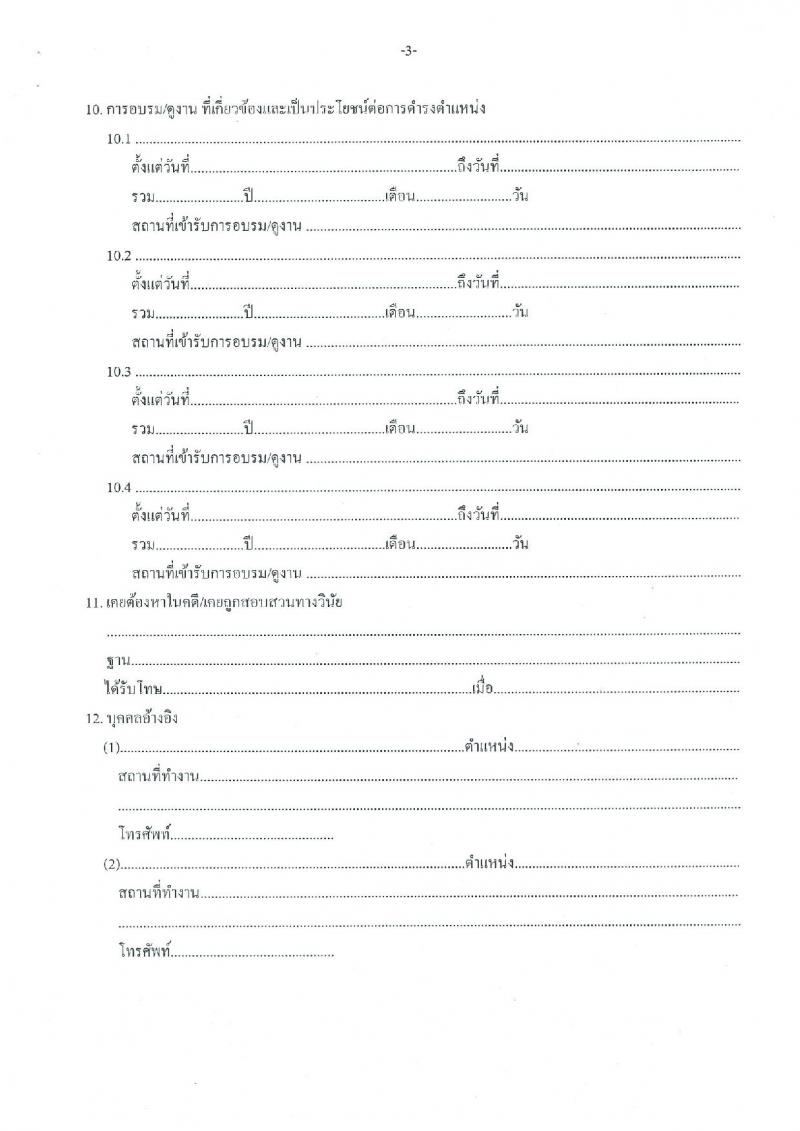 -3-
10. การอบรม/ดูงาน ที่เกี่ยวข้องและเป็นประโยชน์ต่อการดำรงตำแหน่ง
10.1 ........................................................................
ตั้งแต่วันที่........................................ถึงวันที่........................................
รวม....................ปี..............................เดือน....................วัน
สถานที่เข้ารับการอบรม/ดูงาน ........................................................................
10.2 ........................................................................
ตั้งแต่วันที่........................................ถึงวันที่........................................
รวม....................ปี..............................เดือน....................วัน
สถานที่เข้ารับการอบรม/ดูงาน ........................................................................
10.3 ........................................................................
ตั้งแต่วันที่........................................ถึงวันที่........................................
รวม....................ปี..............................เดือน....................วัน
สถานที่เข้ารับการอบรม/ดูงาน ........................................................................
10.4 ........................................................................
ตั้งแต่วันที่........................................ถึงวันที่........................................
รวม....................ปี..............................เดือน....................วัน
สถานที่เข้ารับการอบรม/ดูงาน ........................................................................
11. เคยต้องหาในคดี/เคยถูกสอบสวนทางวินัย
........................................................................
ฐาน........................................................................
ได้รับโทษ........................................เมื่อ........................................
12. บุคคลอ้างอิง
(1)........................................ตำแหน่ง........................................
สถานที่ทำงาน........................................................................
........................................................................
โทรศัพท์........................................
(2)........................................ตำแหน่ง........................................
สถานที่ทำงาน........................................................................
........................................................................
โทรศัพท์........................................